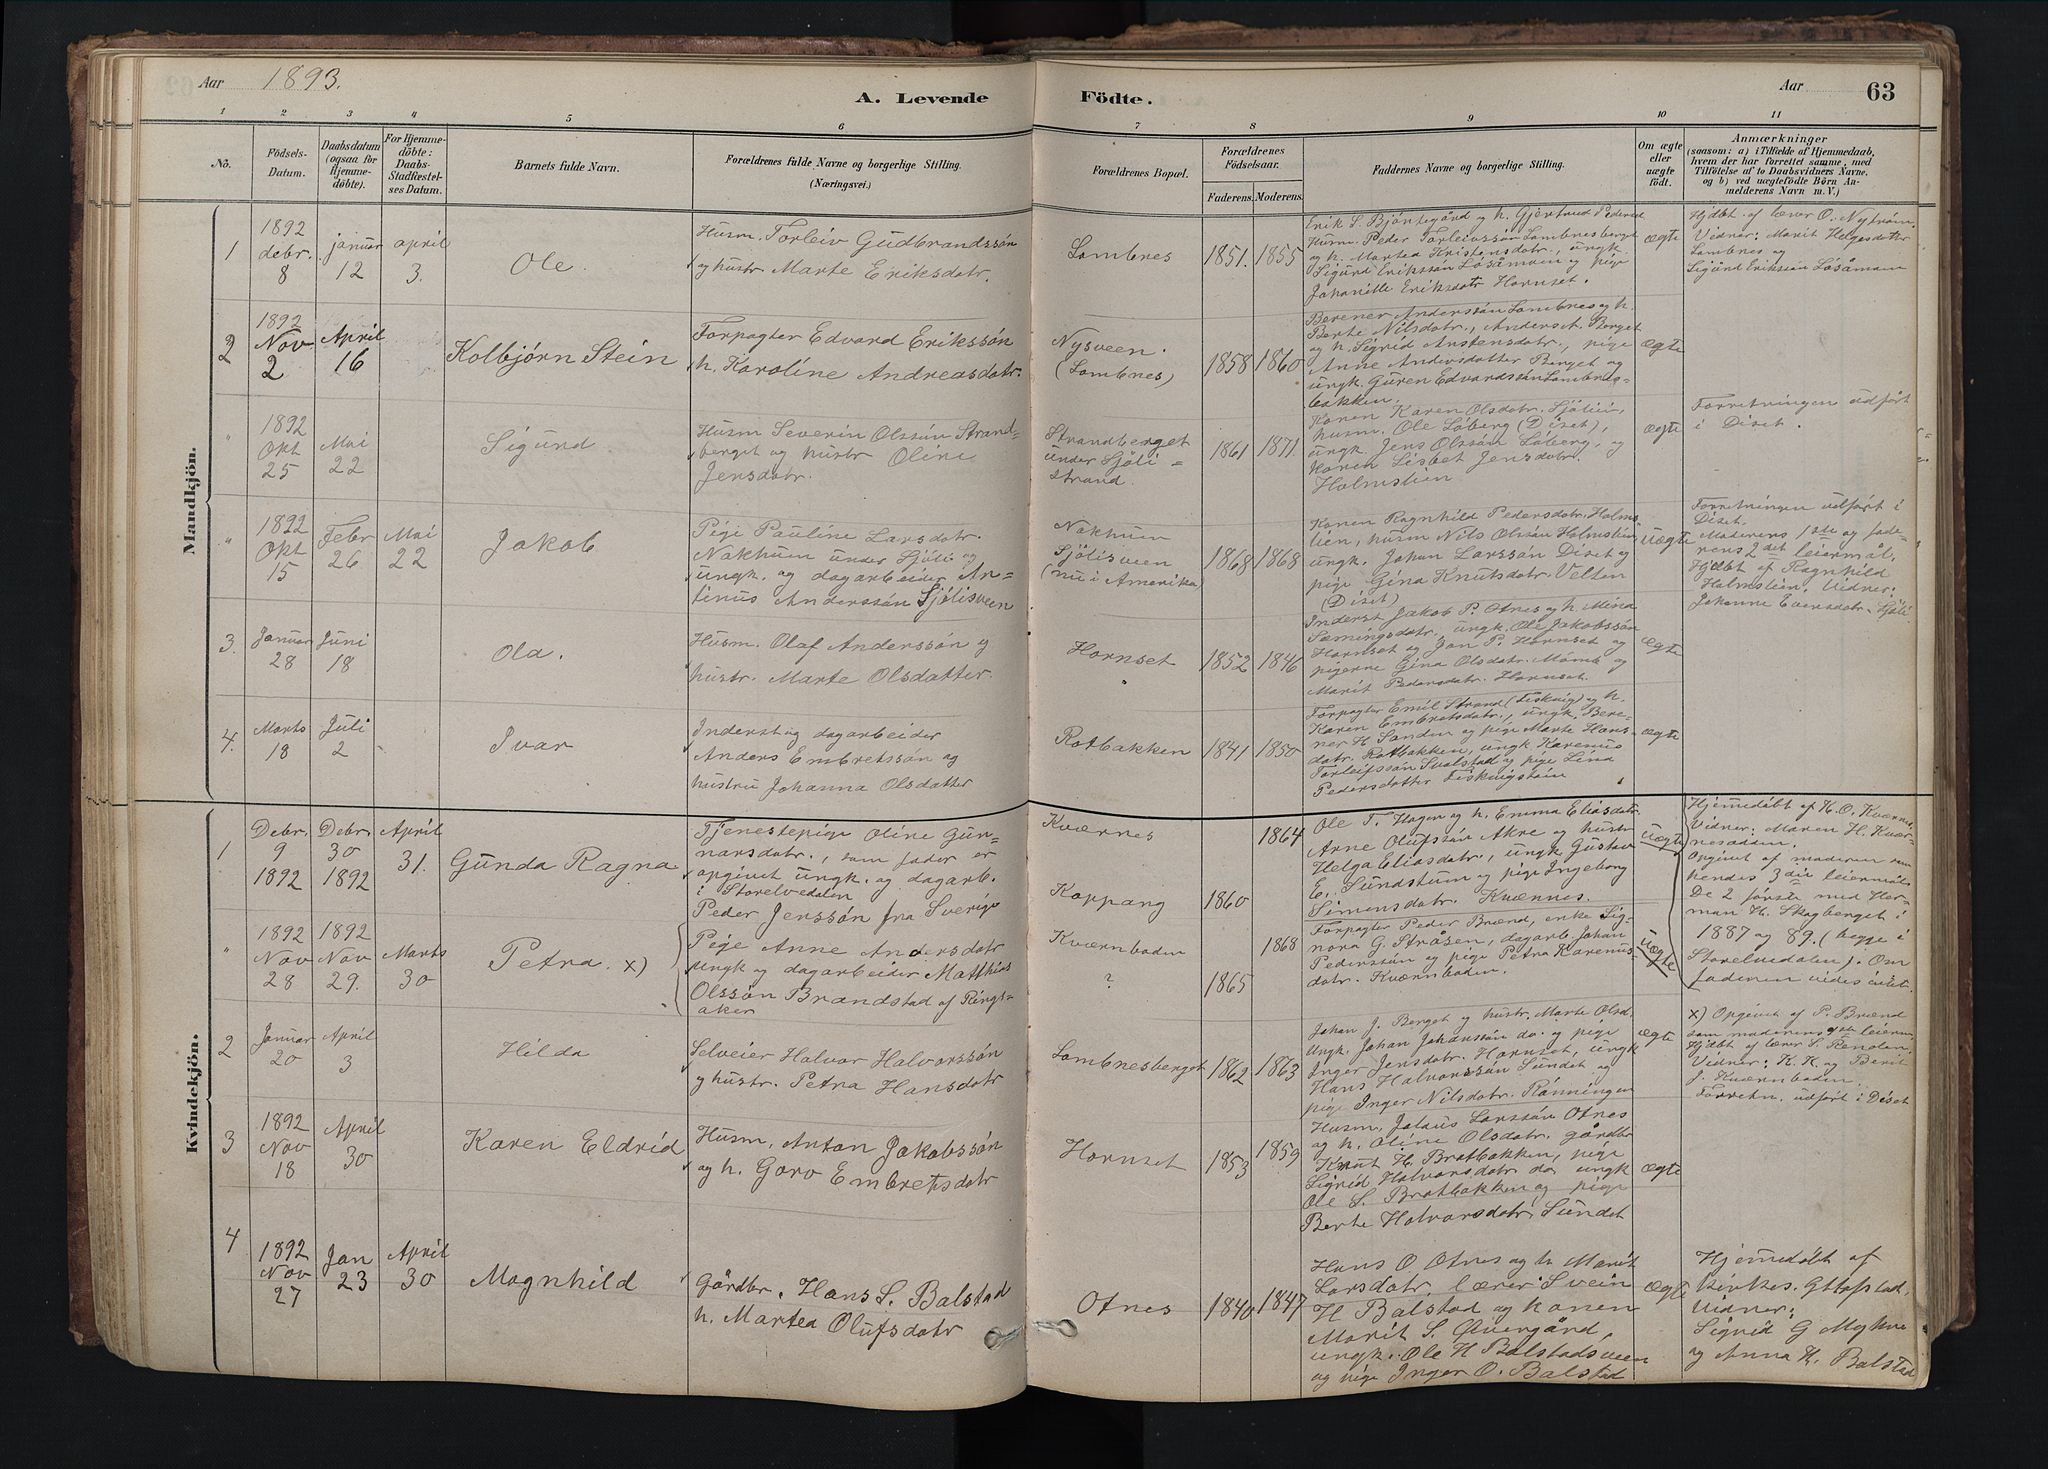 Aar 1893.
A. Levende Födte.
Aar 63
1 2 3 4 5 6 7 8 9 10 11
No.
Födsels-Datum.
Daabsdatum (ogsaa for Hjemme-døbte).
For Hjemme-døbte: Daabs-Stadfæstel-ses Datum.
Barnets fulde Navn.
Forældrenes fulde Navne og borgerlige Stilling. (Næringsvei.)
Forældrenes Bopæl.
Forældrenes Fødselsaar.
Faderens. Moderens.
Faddernes Navne og borgerlige Stilling.
Om ægte eller uægte født.
Anmærkninger
(saasom: a) i Tilfælde af Hjemmedaab,
hvem der har forrettet samme, med
Tilføielse af to Daabsvidners Navne.
og b) ved uægtefödte Börn An-
melderens Navn m. V.)
Mandkjön.
1
1892 debr. 8
januar 12
april 3.
Ole.
Husm. Torleiv Gudbrandssön
og hustr. Marte Eriksdatr.
Lombnes
1851. 1855
Erik S. Bjöntegård og h. Gjertrud Pedersd
Husm. Peder Torleivssön Lombnesberget
og h. Martea Kristensdatr. ungk
Sigurd Erikssön Lösåmoen og pige
Johanitte Eriksdatr Hornset.
ægte
Hjdbt. af lærer O. Nyström.
Vidner: Marit Helgesdatter
Lombnes og
Sigurd Erikssön Lösåmoen
2
1892 Nov 2
April 16
Kolbjørn Stein
Forpagter Edvard Erikssön
h. Karoline Andreasdatr.
Nysveen.
(Lombnes)
1858 1860
Berener Anderssön Lombnes og h.
Berte Nilsdatr., Anders t. Berget
og h. Sigrid Anstensdatr., pige
Anne Andersdatter Berget og
ungk. Guren Edvardssön Lombnes=
bakken.
ægte
"
1892 Okt 25
Mai 22
Sigurd
Husm Severin Olssön Strand=
berget og hustr Oline
Jensdatr.
Strandberget
under Sjöli=
strand.
1861 1871
Konen Karen Olsdatr. Sjölii,
husm. Ole Löberg (Diset),
ungk. Jens Olssön Löberg, og
Karen Lisbet Jensdatr.
Holmstien
ægte
Forretningen udfört
i Diset.
"
1892 Okt 15
Febr 26
Mai 22
Jakob
Pige Pauline Larsdatr.
Nakhuen under Sjöli og
ungk. og dagarbeider An=
tinus Anderssön Sjölisveen
Nakhuen
Sjölisveen
(nu i Amerika)
1868 1868
Konen Ragnhild Pedersdatr. Holms
tien, husm Nils Olssön Holmstien,
ungk. Johan Larssön Diset og
pige Gina Knutsdatr. Velten
(Diset)
uægte
Forretningen udfört i
Diset.
Moderens 1ste og fade
rens 2det leiermål.
Hjdbt af Ragnhild
Holmstien. Vidner:
Johanne Eversdatr. Sjöli
3.
Januar 28
Juni 18
Ola.
Husm. Olaf Anderssön og
hustr. Marte Olsdatter.
Hornset
1852 1846
Inderst Jakob P. Otnes og h. Mina
Sæmingsdatr., ungk. Ole Jakobssön
Hornset og Jon P. Hornset og
pigerne Gina Olsdatr. Mömb og
Marit Pedersdatr. Hornset.
ægte
4.
Marts 18
Juli 2
Ivar
Inderst og dagarbeider
Anders Embretssön og
hustru Johanna Olsdatter
Rotbakken
1841 1850
Forpagter Emil Strand (Fiskvig) og h.
Karen Embretsdatr., ungk. Bere=
ner H. Sanden og pige Marte Hans=
datr. Rotbakken, ungk Karenus
Torleifssön Svalstad og pige Lina
Pedersdatter Fiskvigstein
ægte
Kvindekjön.
1
Debr. 9 1892
Debr. 30 1892
April 31.
Gunda Ragna
Tjenestepige Oline Gun=
narsdatr., som fader er
opgivet ungk. og dagarb.
i Storelvedalen
Peder Jenssön fra Sverige
Kværnes
Koppang
1860 1864
Ole T. Hagen og h. Emma Eliasdatr.
Arne Olufssön Akre og hustr
Helga Eliasdatr., ungk Gustav
E. Sundstum og pige Ingeborg
Simensdatr. Kværnes.
uægte
Hjemedöbt af H. O. Kværnes.
Vidner: Maren H. Kvær=
nesodden.
Opgivet af moderen som
hendes 3die leiermål.
De 2 förste med Her=
man H. Skogberget i
1887 og 89. (begge i
Storelvedalen). Om
faderen vides intet.
"
1892 Nov 28
1892 Nov 29.
Marts 30
Petra. x)
Pige Anne Andersdatr
ungk og dagarbeider Matthias
Olssön Brandstad af Rings=
aker
Kværnboden
?
1865 1868
Forpagter Peder Brænd, enke Sig=
nora G. Stråsen, dagarb. Johan
Pederssön og pige Petra Karenus
datr. Kværnboden.
uægte
x) Opgivet af P. Brænd
som moderens 2det leierm.
Hjdbt af lærer S. Renden.
Vidner: K. K og Berit
J. Kværnboden.
Forretn. udfört i Diset
2
Januar 20
April 3
Hilda
Selveier Halvor Halvorssön
og hustr. Petra Hansdatr
Lombnesberget
1862 1863
Johan J. Berget og hustr. Marte Olsd.
Ungk. Johan Johanssön do. og pige
Inger Jensdatr. Hornset, ungk
Hans Halvorssön Sundet og
pige Inger Nilsdatr. Rönningen
ægte
3
1892 Nov 18
April 30
Karen Eldrid
Husm. Anton Jakobssön
og h. Goro Embretsdatr
Hornset
1853 1859
Husm. Johaus Larssön Otnes
og h. Oline Olsdatr. gårdbr
Knut H. Bratbakken, pige
Sigrid Halvorsdatr do ungk
Ole S. Bratbakken og pige
Berte Halvorsdatr. Sundet
ægte
4
1892 Nov 27
Jan 23
April 30
Magnhild
Gårdbr. Hans S. Balstad
h. Martea Olufsdatr
Otnes
1840 1847
Hans O. Otnes og h Marit
Larsdatr. lærer Svein
H Balstad og konen
Marit S. Övergård,
ungk. Ole H Balstadsveen
og pige Inger O. Balstad
ægte
Hjemedöbt af
kirkes. G
Vidner:
Sigrid G Myhre
og Anna H. Balstad